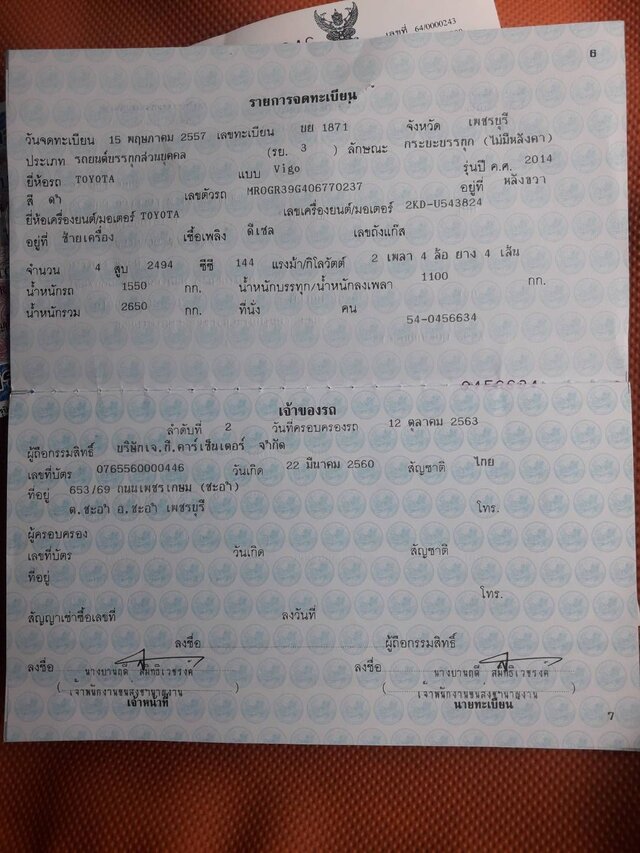 เลขที่ 64/0000243
6
รายการจดทะเบียน
วันจดทะเบียน 15 พฤษภาคม 2557 เลขทะเบียน บย 1871 จังหวัด เพชรบุรี
ประเภท รถยนต์บรรทุกส่วนบุคคล (รย. 3 ) ลักษณะ กระบะบรรทุก (ไม่มีหลังคา)
ยี่ห้อรถ TOYOTA แบบ Vigo รุ่นปี ค.ศ. 2014
สี ดำ เลขตัวรถ MR0GR39G406770237 อยู่ที่ หลังขวา
ยี่ห้อเครื่องยนต์/มอเตอร์ TOYOTA เลขเครื่องยนต์/มอเตอร์ 2KD-U543824
อยู่ที่ ซ้ายเครื่อง เชื้อเพลิง ดีเซล เลขถังแก๊ส
จำนวน 4 สูบ 2494 ซีซี 144 แรงม้า/กิโลวัตต์ 2 เพลา 4 ล้อ ยาง 4 เส้น
น้ำหนักรถ 1550 กก. น้ำหนักบรรทุก/น้ำหนักลงเพลา 1100 กก.
น้ำหนักรวม 2650 กก. ที่นั่ง คน
54-0456634
เจ้าของรถ
ลำดับที่ 2 วันที่ครอบครองรถ 12 ตุลาคม 2563
ผู้ถือกรรมสิทธิ์ บริษัทเจ.ที.คาร์เซ็นเตอร์ จำกัด
เลขที่บัตร 0765560000446 วันเกิด 22 มีนาคม 2560 สัญชาติ ไทย
ที่อยู่ 653/69 ถนนเพชรเกษม (ชะอำ)
ต.ชะอำ อ.ชะอำ เพชรบุรี โทร.
ผู้ครอบครอง
เลขที่บัตร วันเกิด สัญชาติ
ที่อยู่
โทร.
สัญญาเช่าซื้อเลขที่ ลงวันที่
ลงชื่อ ผู้ถือกรรมสิทธิ์
ลงชื่อ ลงชื่อ
เจ้าพนักงานขนส่งชำนาญงาน เจ้าพนักงานขนส่งชำนาญงาน
เจ้าหน้าที่ นายทะเบียน
7